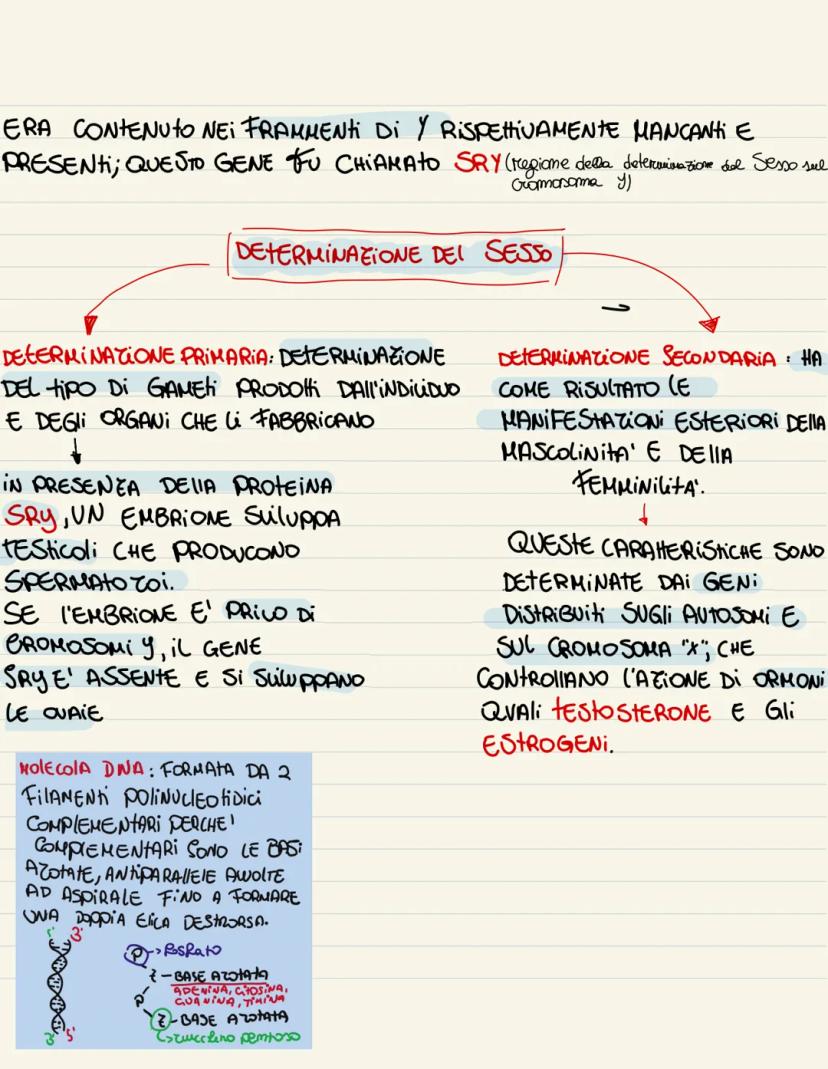 ERA CONTENUTO NEI FRAMMENTI DI Y RISPETTIVAMENTE MANCANTI E
PRESENTI; QUESTO GENE FU CHIAMATO SRY (regione della determinazione del Sesso sul
cromosoma Y)
DETERMINAZIONE DEL SESSO
DETERMINAZIONE PRIMARIA: DETERMINAZIONE
DEL TIPO DI GAMETI PRODOTTI DALL'INDIVIDUO
E DEGLI ORGANI CHE LI FABBRICANO
IN PRESENZA DELLA PROTEINA
SRY, UN EMBRIONE SVILUPPA
TESTICOLI CHE PRODUCONO
SPERMATOZOI.
SE L'EMBRIONE E' PRIVO DI
CROMOSOMI Y, IL GENE
SRY E' ASSENTE E SI SVILUPPANO
LE OVAIE
DETERMINAZIONE SECONDARIA: HA
COME RISULTATO LE
MANIFESTAZIONI ESTERIORI DELLA
MASCOLINITA' E DELLA
FEMMINILITA'.
QUESTE CARATTERISTICHE SONO
DETERMINATE DAI GENI
DISTRIBUITI SUGLI AUTOSOMI E
SUL CROMOSOMA "X", CHE
CONTROLLANO L'AZIONE DI ORMONI
QUALI TESTOSTERONE E GLI
ESTROGENI.
MOLECOLA DNA: FORMATA DA 2
FILAMENTI POLINUCLEOTIDICI
COMPLEMENTARI PERCHE'
COMPLEMENTARI SONO LE BASI
AZOTATE, ANTIPARALLELE AVVOLTE
AD ASPIRALE FINO A FORMARE
UNA DOPPIA ELICA DESTRORSA.
5' 3'
P -> FOSFATO
Z - BASE AZOTATA
ADENINA, CITOSINA,
GUANINA, TIMINA
P
Z - BASE AZOTATA
zucchero pentoso
3' 5'